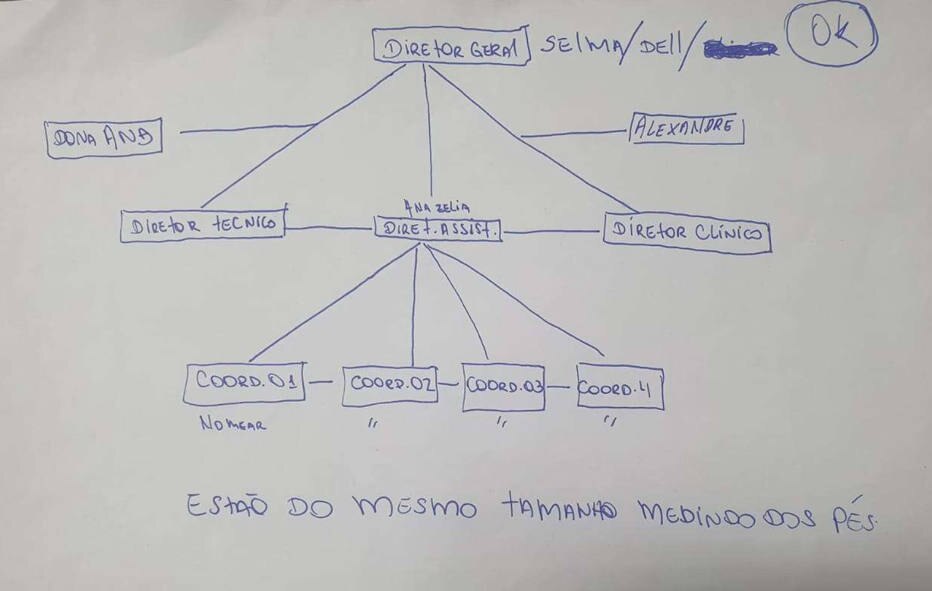 DIRETOR GERAL SELMA/DELL/
OK
DONA ANA
ALEXANDRE
ANA ZELIA
DIRETOR TECNICO
DIRET. ASSIST.
DIRETOR CLÍNICO
COORD.01 — COORD.02 — COORD.03 — COORD.4
NOMEAR " " "
ESTÃO DO MESMO TAMANHO MEDINDO DOS PÉS.